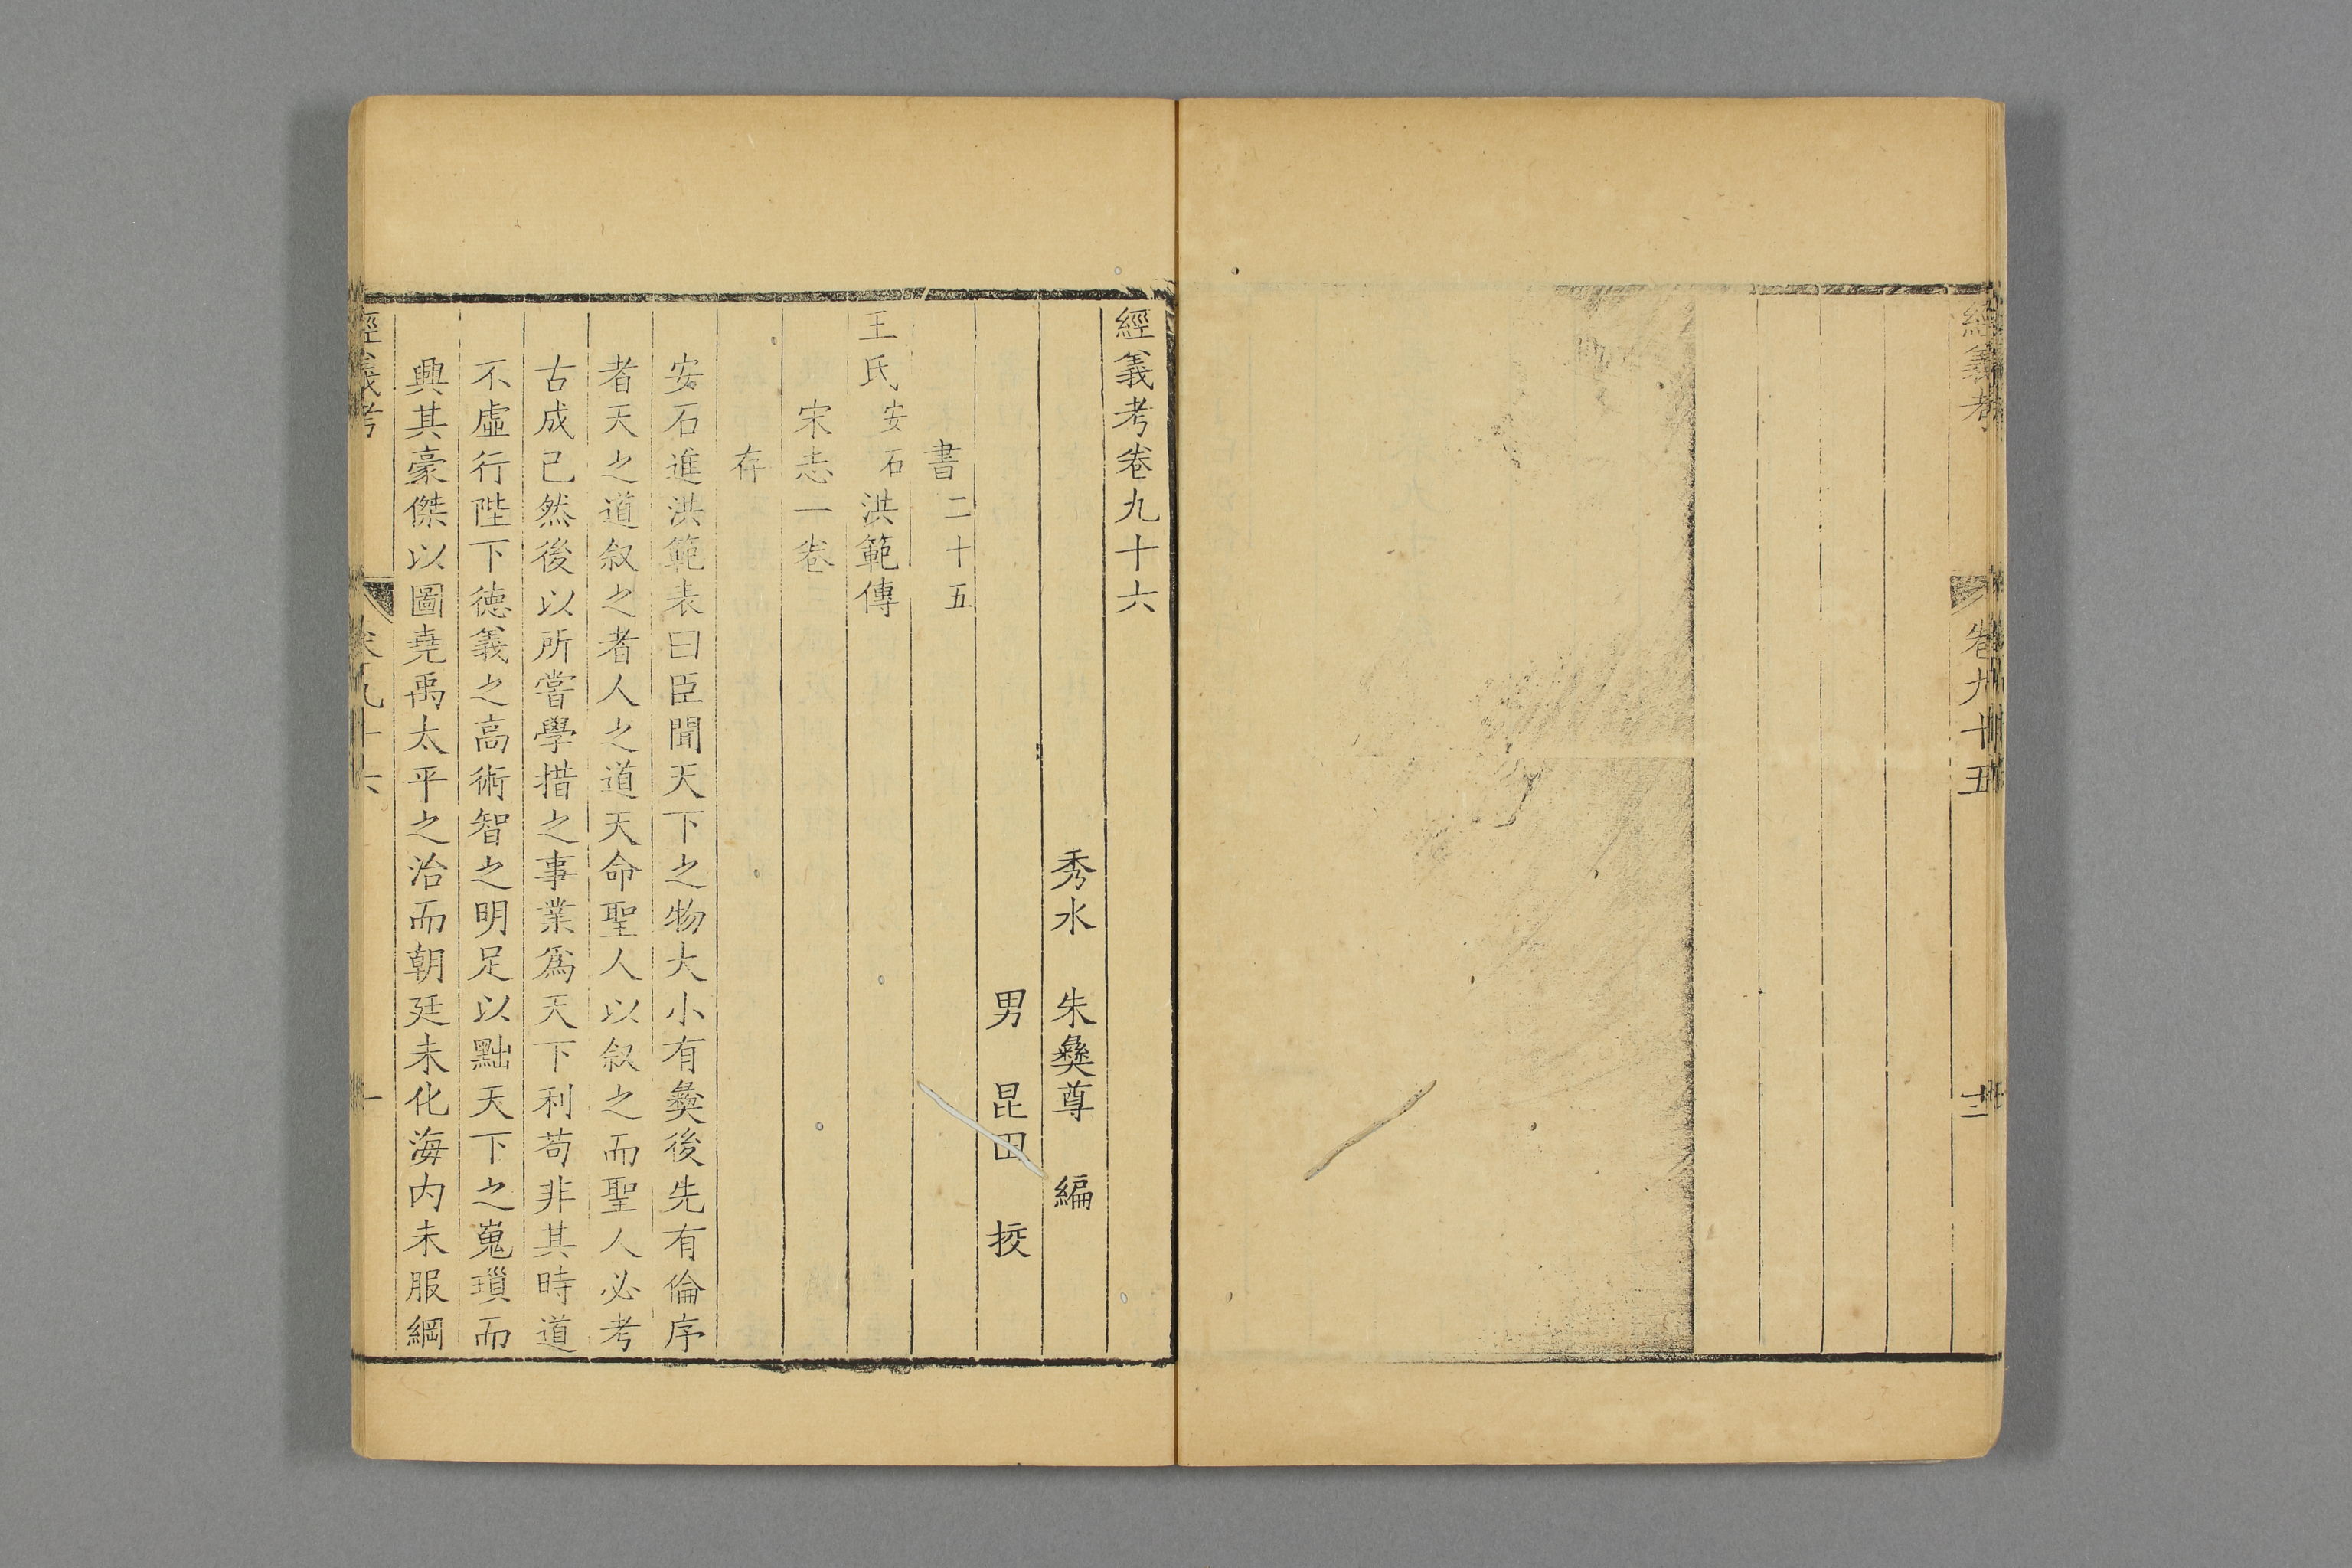 經義考
卷九十五
經義考卷九十六
秀水 朱彝尊 編
男 昆田 挍
書二十五
王氏安石洪範傳
宋志一卷
存
安石進洪範表曰臣聞天下之物大小有彝後先有倫序
者天之道叙之者人之道天命聖人以叙之而聖人必考
古成已然後以所嘗學措之事業爲天下利苟非其時道
不虛行陛下德義之高術智之明足以黜天下之嵬瑣而
興其豪傑以圖堯禹太平之治而朝廷未化海内未服綱
經義考
卷九十六
一